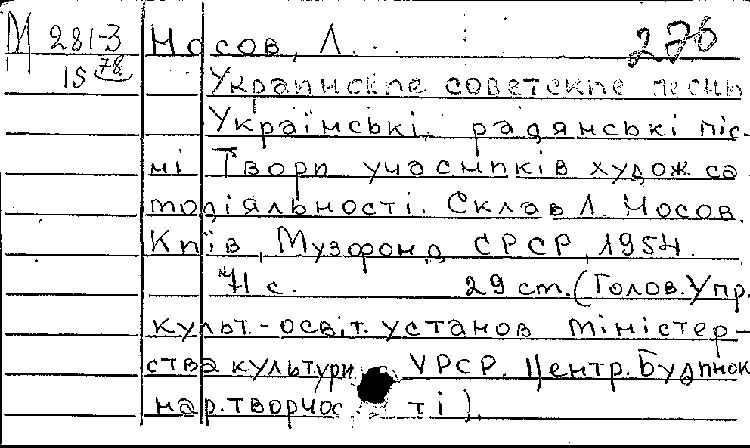 М 281-3 Носов, Л. . . 276
15 78
Украинские советские песни
Українські радянські піс-
ні Твори учасників худож са
модіяльності. Склав Л. Носов.
Київ, Музфонд СРСР, 1954.
71 с. 29 см. (Голов. Упр.
культ-освіт. установ Міністер-
ства культури УРСР. Центр. Будинок
нар. творчос ті).